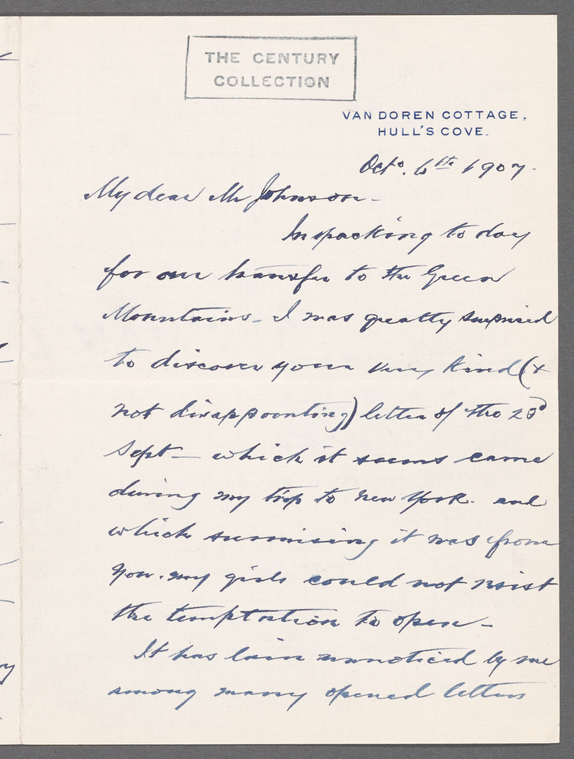 THE CENTURY
COLLECTION
VAN DOREN COTTAGE,
HULL'S COVE.
Octo. 6th 1907.
My dear Mr Johnson-
In packing to day
for our transfer to the Green
Mountains- I was greatly surprised
to discover your very kind (&
not disappointing) letter of the 23d
Sept- which it seems came
during my trip to New York. and
which surmising it was from
you. my girls could not resist
the temptation to open-
It has lain unnoticed by me
among many opened letters